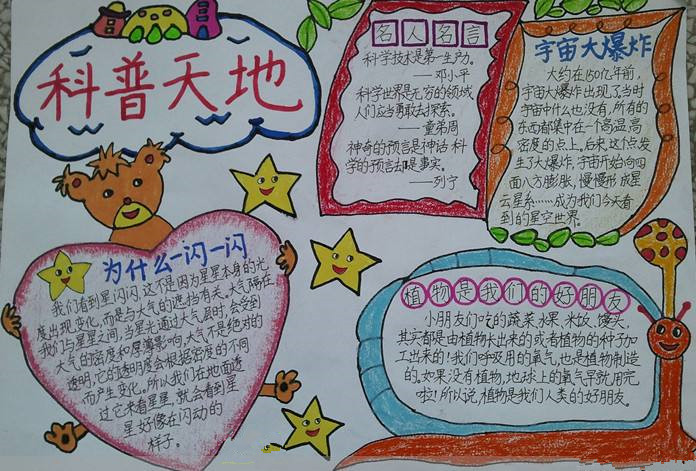 科普天地
名人名言
科学技术是第一生产力。
——邓小平
科学世界是无穷的领域,
人们应当勇敢去探索。
——童第周
神奇的预言是神话,科
学的预言却是事实。
——列宁
宇宙大爆炸
大约在150亿年前,
宇宙大爆炸出现了,当时
宇宙中什么也没有,所有的
东西都集中在一个高温,高
密度的点上。后来,这个点发
生了大爆炸,宇宙开始向四
面八方膨胀,慢慢形成星
云星系……成为我们今天看
到的星空世界。
为什么一闪一闪
我们看到星闪闪,这不是因为星星本身的光
度出现变化,而是与大气的遮挡有关。大气隔在
我们与星星之间,当星光通过大气层时,会受到
大气的密度和厚薄影响。大气不是绝对的
透明,它的透明度会根据密度的不同
而产生变化。所以我们在地面透
过它来看星星,就会看到星
星好像在闪动的
样子。
植物是我们的好朋友
小朋友们吃的蔬菜、水果、米饭、馒头,
其实都是由植物长出来的或者植物的种子加
工出来的!我们呼吸用的氧气,也是植物制造
的。如果没有植物,地球上的氧气早就用完
啦!所以说,植物是我们人类的好朋友。